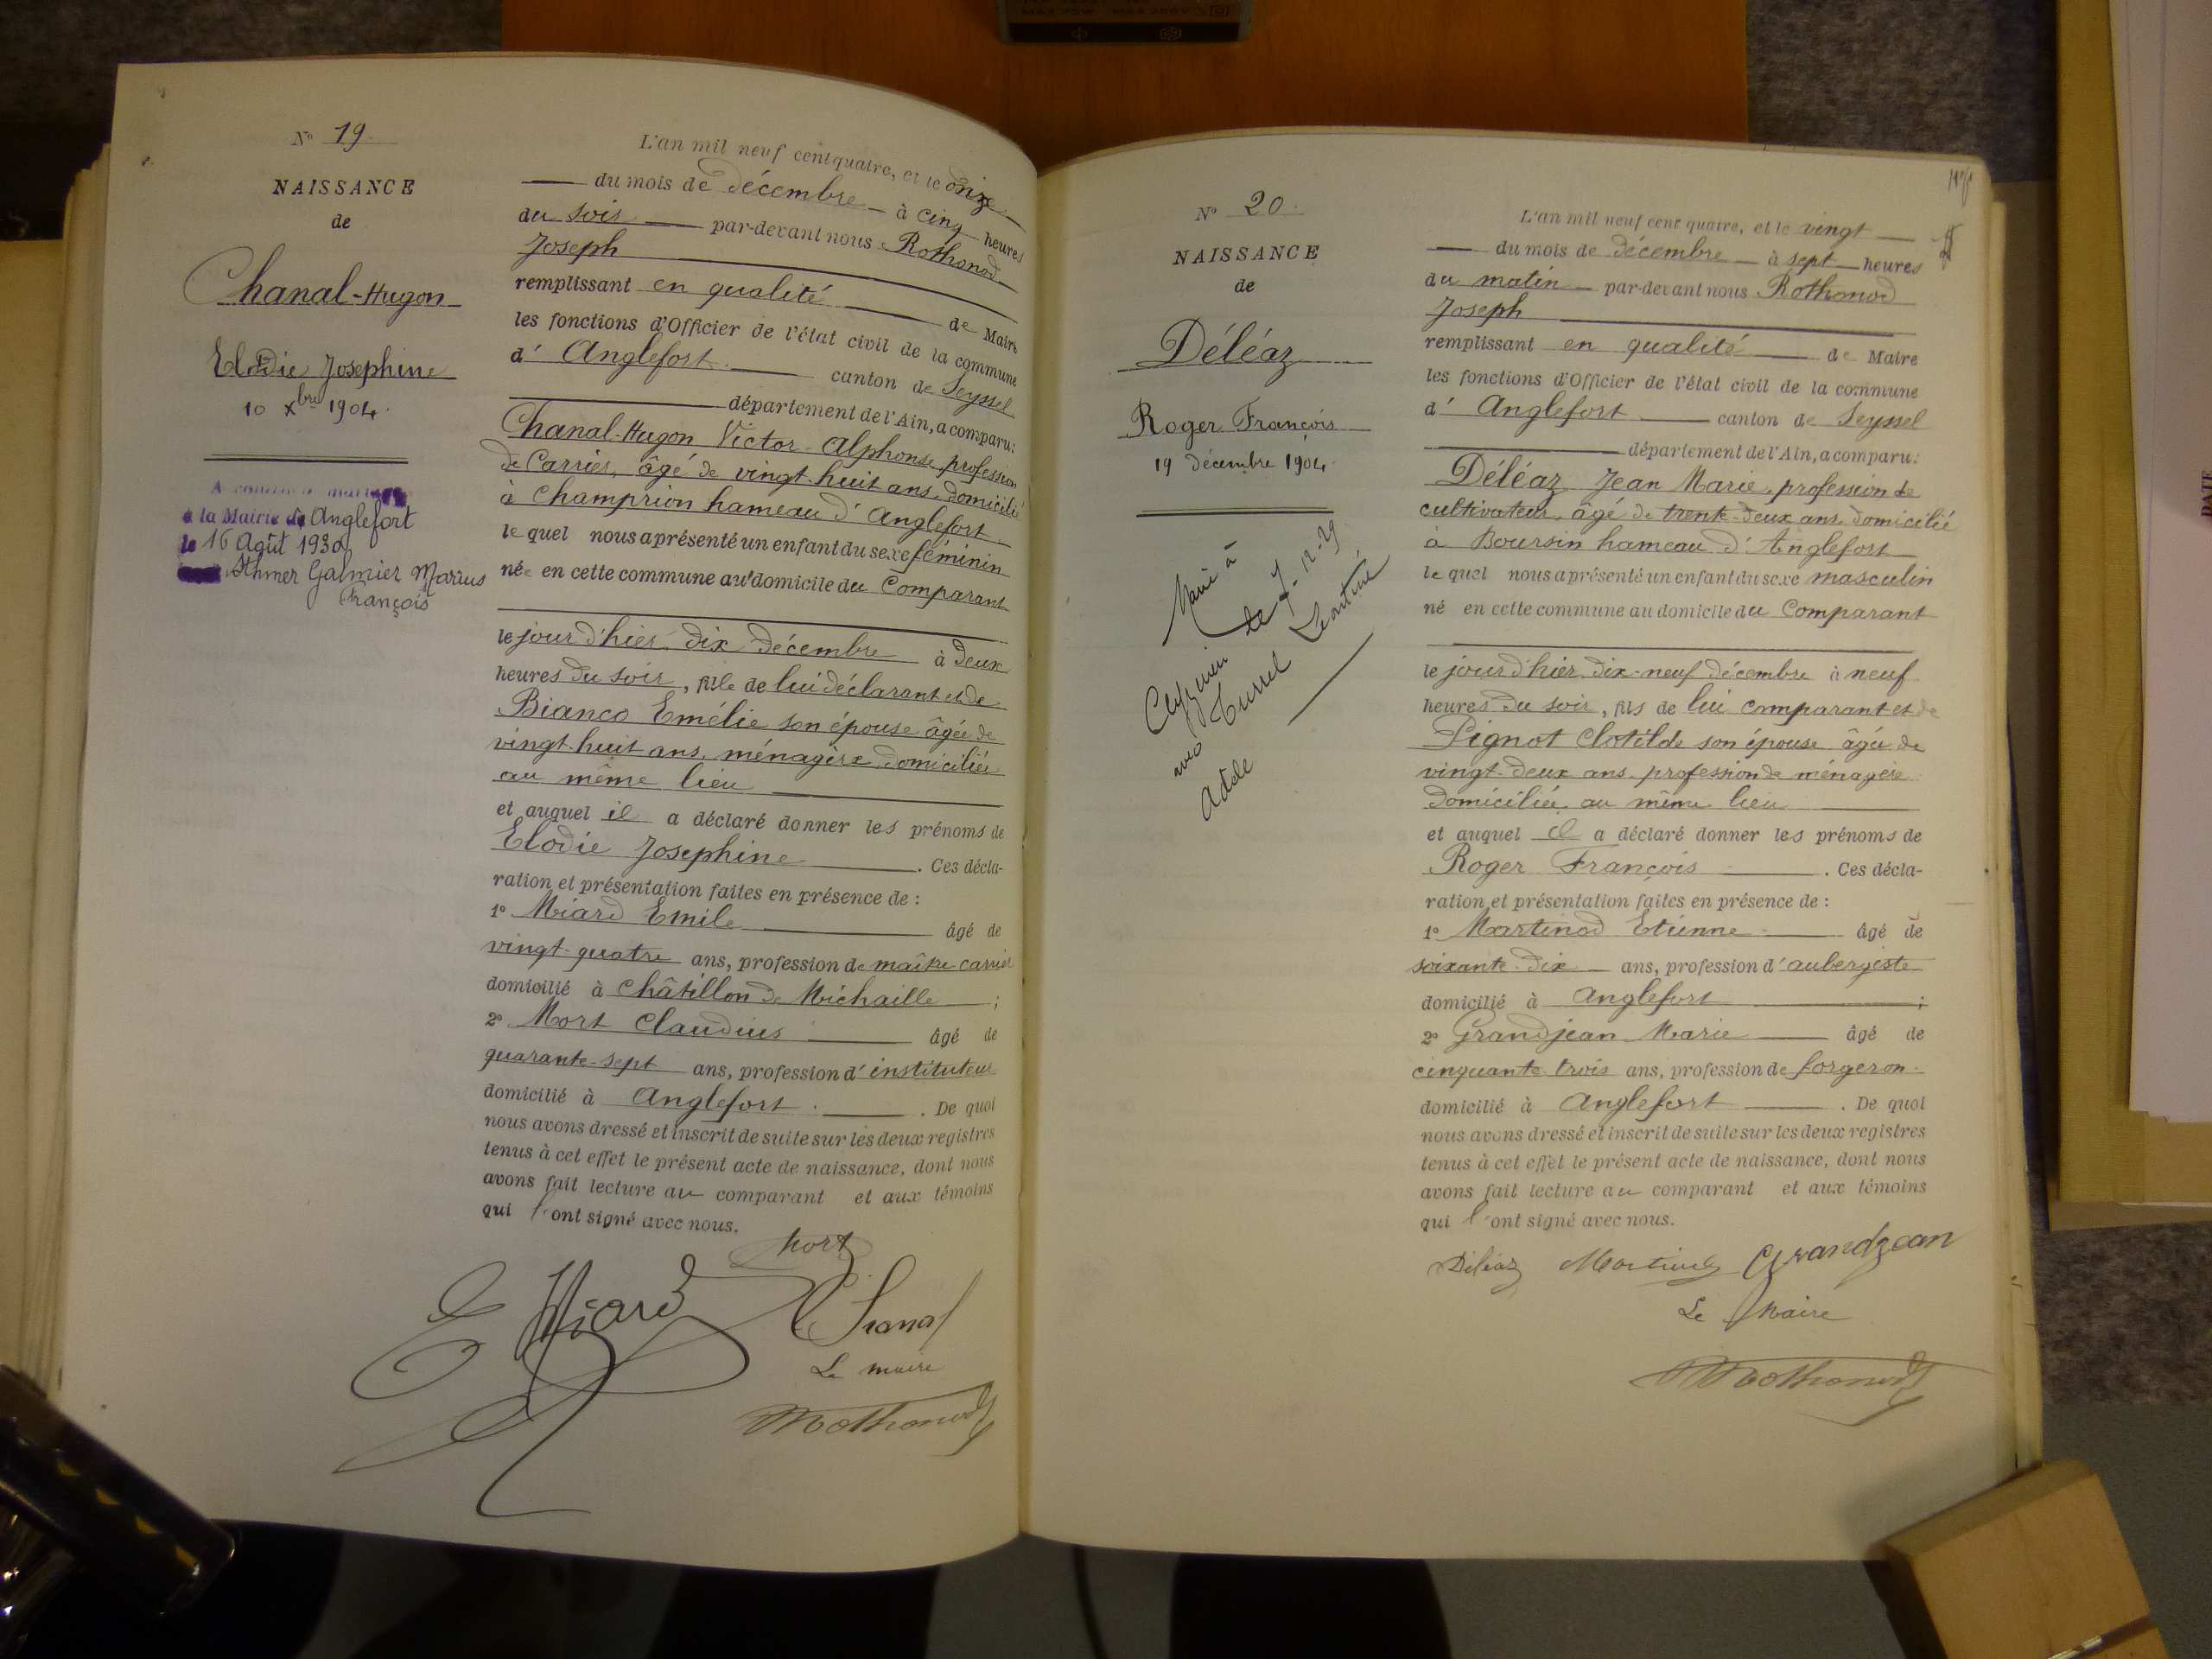 Nº 19.
NAISSANCE
de
Chanal-Hugon
Elodie Josephine
10 Xbre 1904.
A contracté mariage
à la Mairie de Anglefort
le 16 Août 1930
Galmier Marius
François
L'an mil neuf cent quatre, et le onze
du mois de décembre à cinq heures
du soir par-devant nous Rothonod
Joseph
remplissant en qualité de Maire
les fonctions d'Officier de l'état civil de la commune
d' Anglefort canton de Seyssel
département de l'Ain, a comparu:
Chanal-Hugon Victor Alphonse, profession
de Carrier, âgé de vingt-huit ans, domicilié
à Champrion hameau d'Anglefort
lequel nous a présenté un enfant du sexe féminin
née en cette commune au domicile du Comparant
le jour d'hier dix décembre à deux
heures du soir, fille de lui déclarant et de
Bianco Emélie son épouse âgée de
vingt-huit ans, ménagère domiciliée
au même lieu
et auquel il a déclaré donner les prénoms de
Elodie Josephine. Ces décla-
ration et présentation faites en présence de :
1º Miard Emile âgé de
vingt-quatre ans, profession de maître carrier
domicilié à Châtillon de Michaille ;
2º Mort Claudius âgé de
quarante-sept ans, profession d'instituteur
domicilié à Anglefort. De quoi
nous avons dressé et inscrit de suite sur les deux registres
tenus à cet effet le présent acte de naissance, dont nous
avons fait lecture au comparant et aux témoins
qui l'ont signé avec nous.
Mort
E Miard Chanal
Le maire
Rothonod
Nº 20.
NAISSANCE
de
Déléaz
Roger François
19 décembre 1904.
Marié à
Cleyzieu le 7-12-29
avec Turrel Léontine
Adèle
L'an mil neuf cent quatre, et le vingt
du mois de décembre à sept heures
du matin par-devant nous Rothonod
Joseph
remplissant en qualité de Maire
les fonctions d'Officier de l'état civil de la commune
d' Anglefort canton de Seyssel
département de l'Ain, a comparu:
Déléaz Jean Marie, profession de
cultivateur, âgé de trente-deux ans, domicilié
à Boursin hameau d'Anglefort
lequel nous a présenté un enfant du sexe masculin
né en cette commune au domicile du Comparant
le jour d'hier dix-neuf décembre à neuf
heures du soir, fils de lui comparant et de
Pignot Clotilde son épouse âgée de
vingt-deux ans profession de ménagère
domiciliée au même lieu
et auquel il a déclaré donner les prénoms de
Roger François. Ces décla-
ration et présentation faites en présence de :
1º Martinod Etienne âgé de
soixante-dix ans, profession d'aubergiste
domicilié à Anglefort ;
2º Grandjean Marie âgé de
cinquante-trois ans, profession de forgeron
domicilié à Anglefort. De quoi
nous avons dressé et inscrit de suite sur les deux registres
tenus à cet effet le présent acte de naissance, dont nous
avons fait lecture au comparant et aux témoins
qui l'ont signé avec nous.
Déléaz Martinod Grandjean
Le Maire
Rothonod
DATE